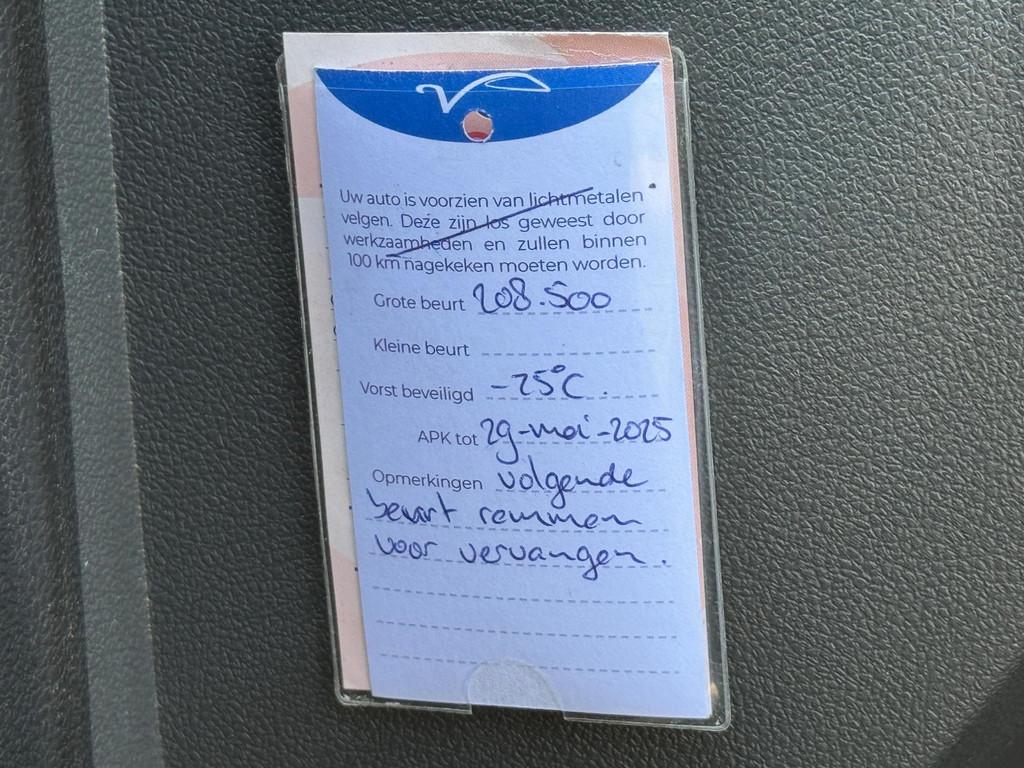 Uw auto is voorzien van lichtmetalen
velgen. Deze zijn los geweest door
werkzaamheden en zullen binnen
100 km nagekeken moeten worden.
Grote beurt 208.500
Kleine beurt
Vorst beveiligd -25°C.
APK tot 29-mei-2025
Opmerkingen volgende
beurt remmen
voor vervangen.